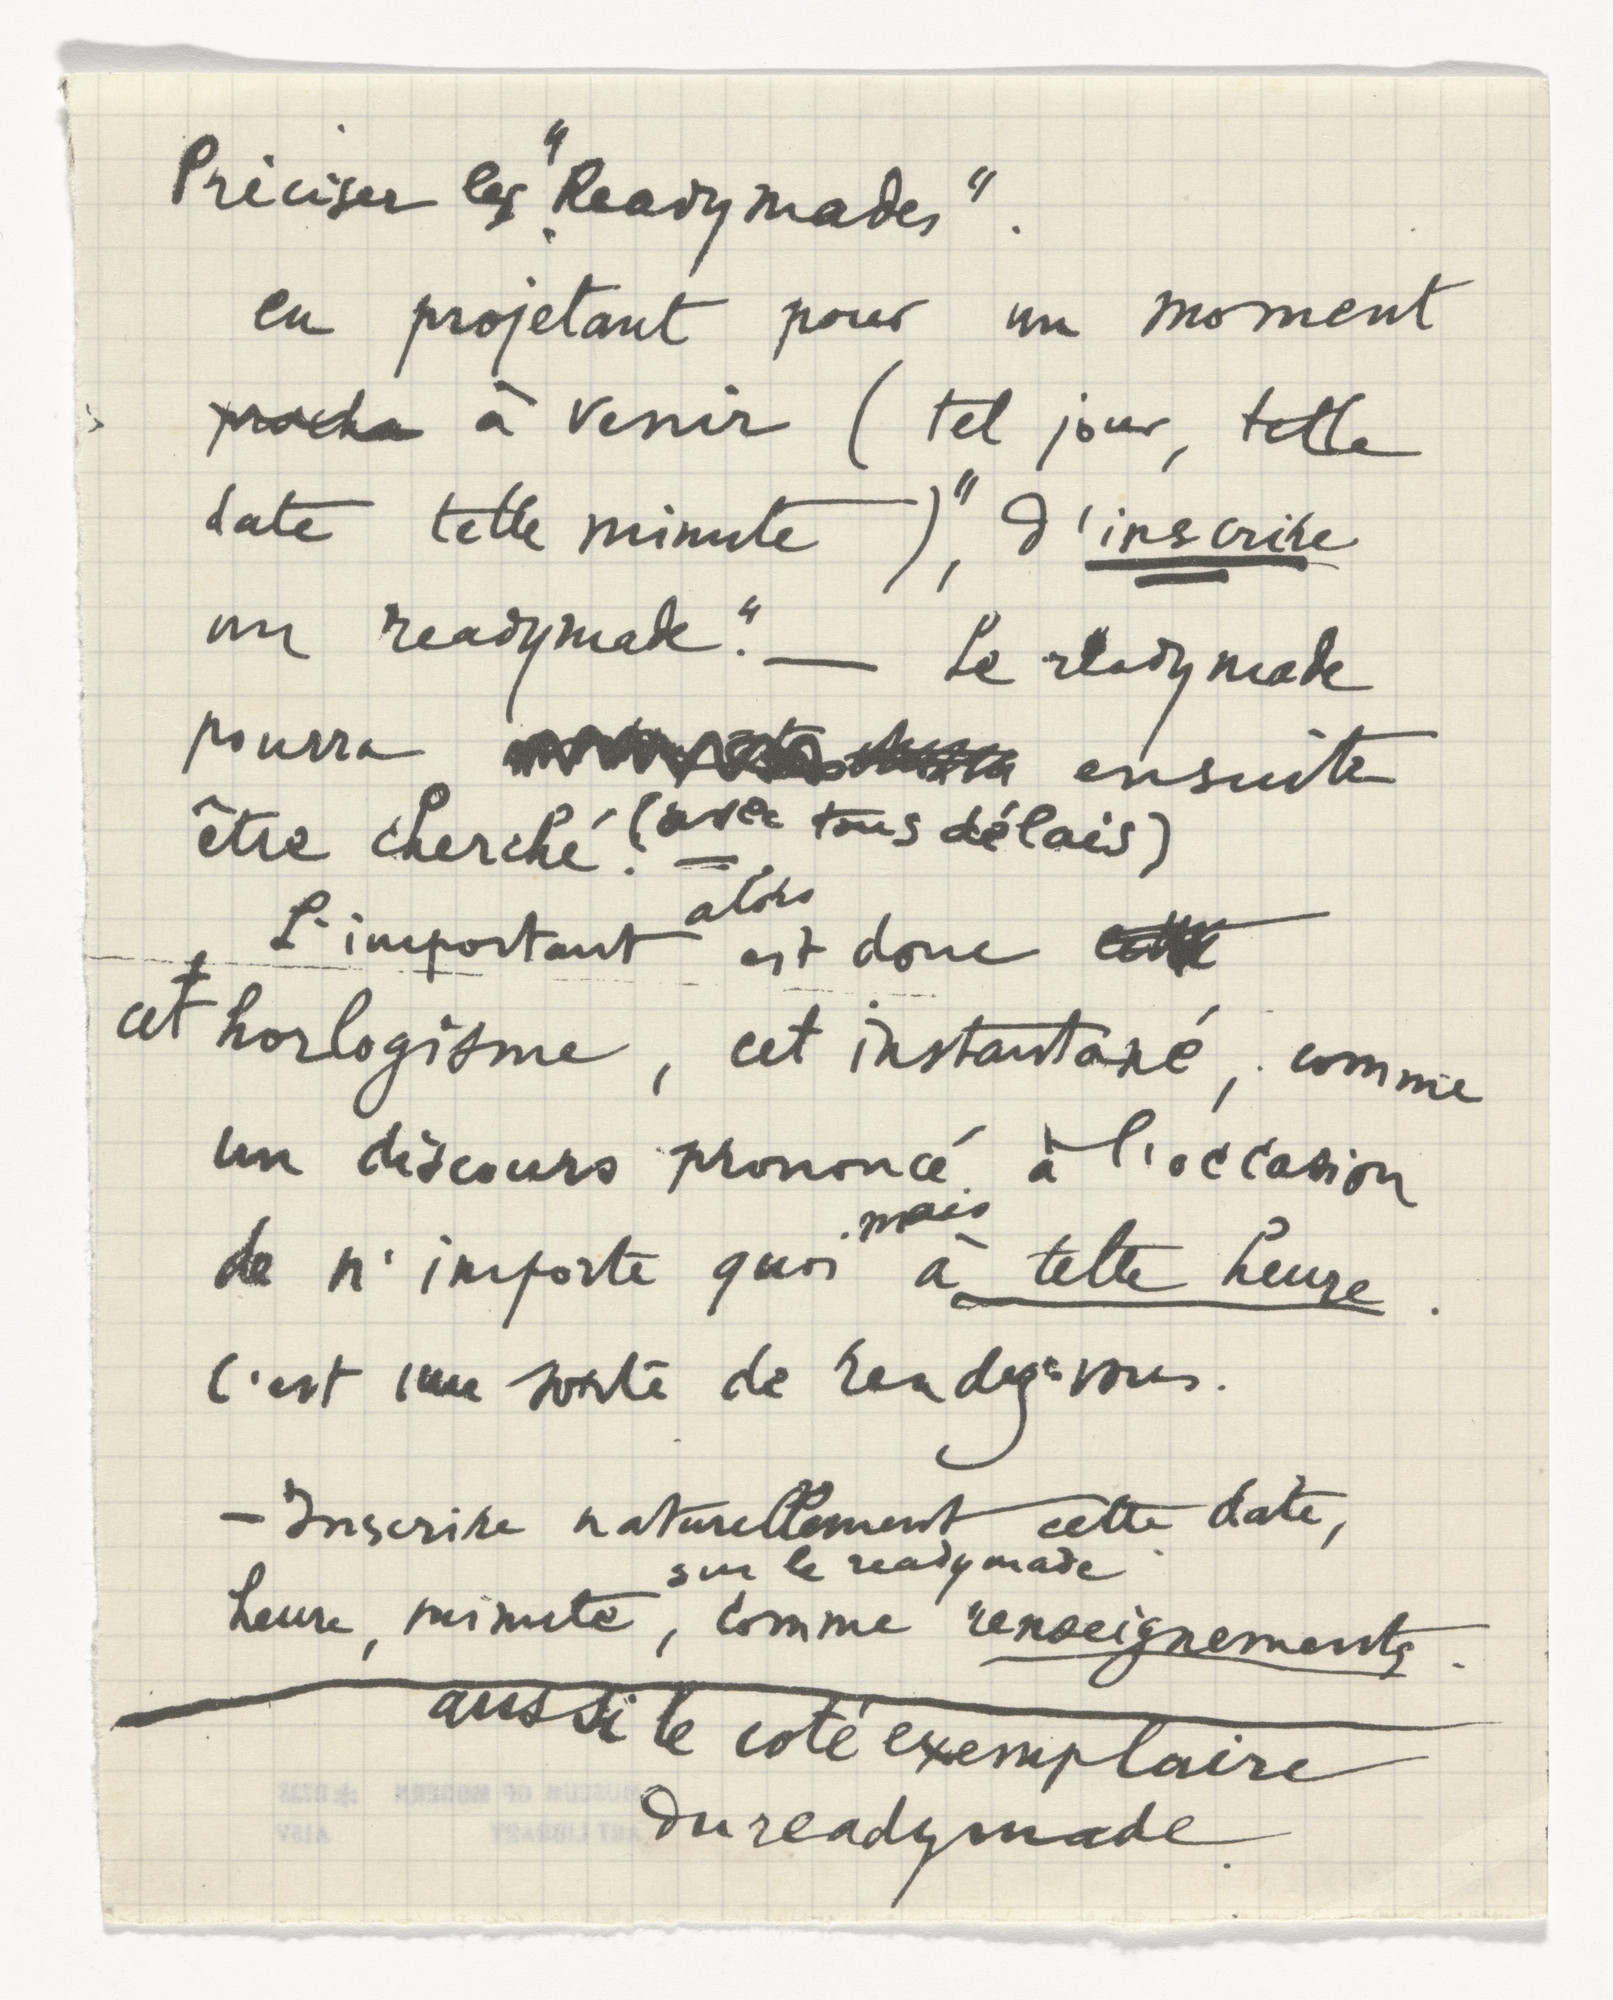 Préciser les "Readymades".
en projetant pour un moment
procha à venir (tel jour, telle
date telle minute)", d'inscrire
un readymade". — Le readymade
pourra ensuite
être cherché. (avec tous délais)
—
alors
L'important est donc cette
cet horlogisme, cet instantané, comme
un discours prononcé à l'occasion
mais
de n'importe quoi à telle heure.
C'est une sorte de rendez-vous.
— Inscrire naturellement cette date,
sur le readymade
heure, minute, comme renseignements.
aussi le coté exemplaire
du readymade.
MUSEUM OF MODERN
ART LIBRARY